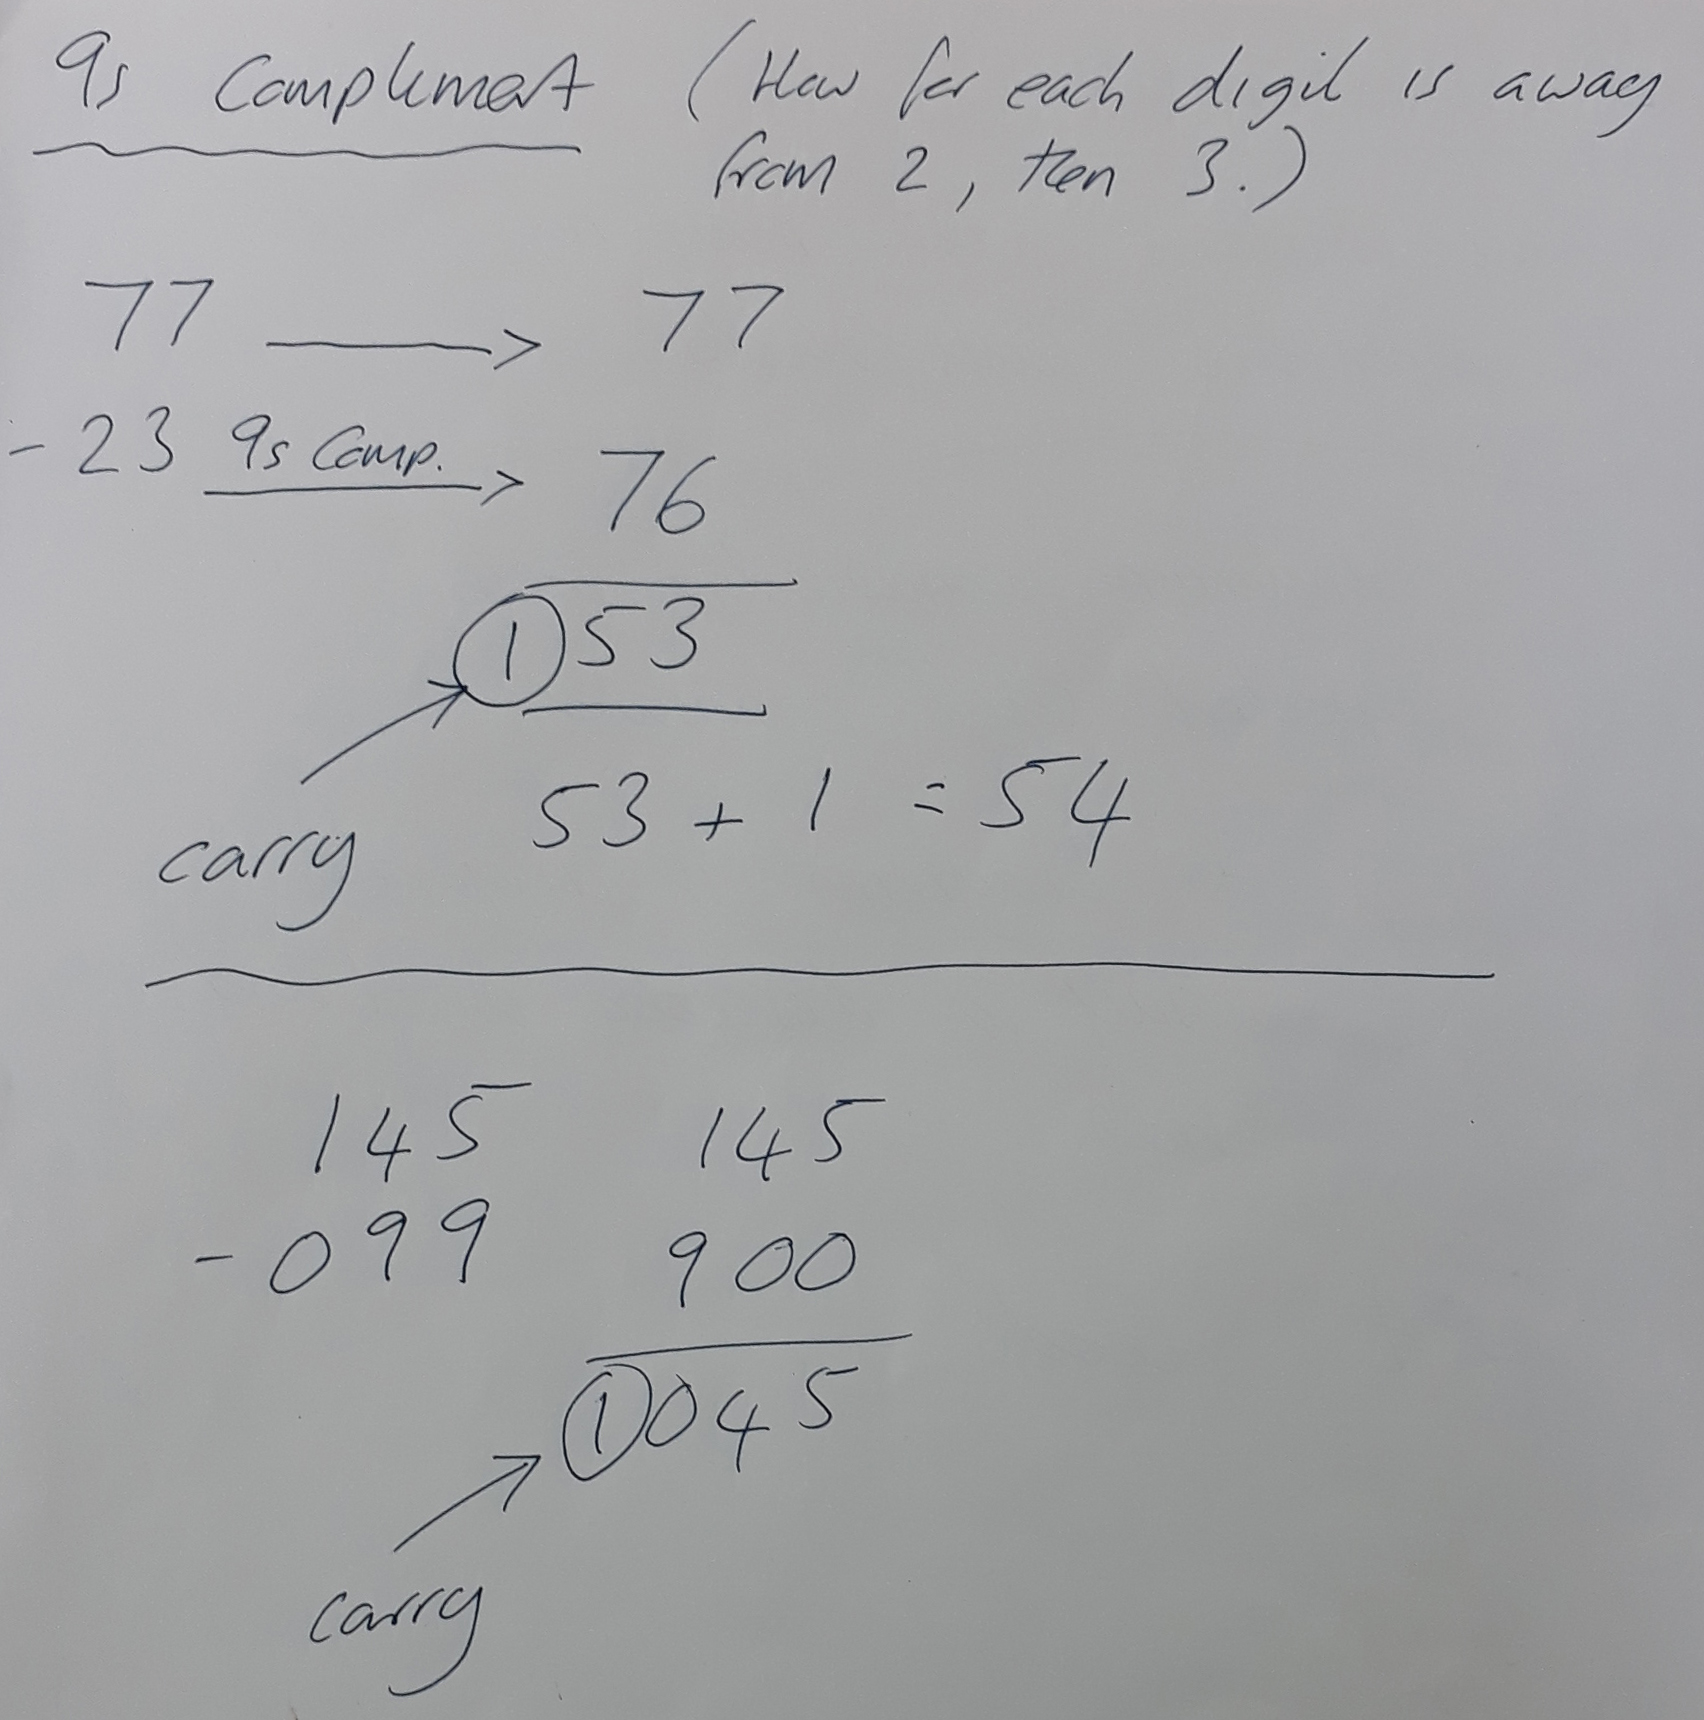 9s Complement (How far each digit is away
from 2, then 3.)
77 → 77
- 23 9s Comp. → 76
1 53
carry 53 + 1 = 54
145 145
- 099 900
1 045
carry